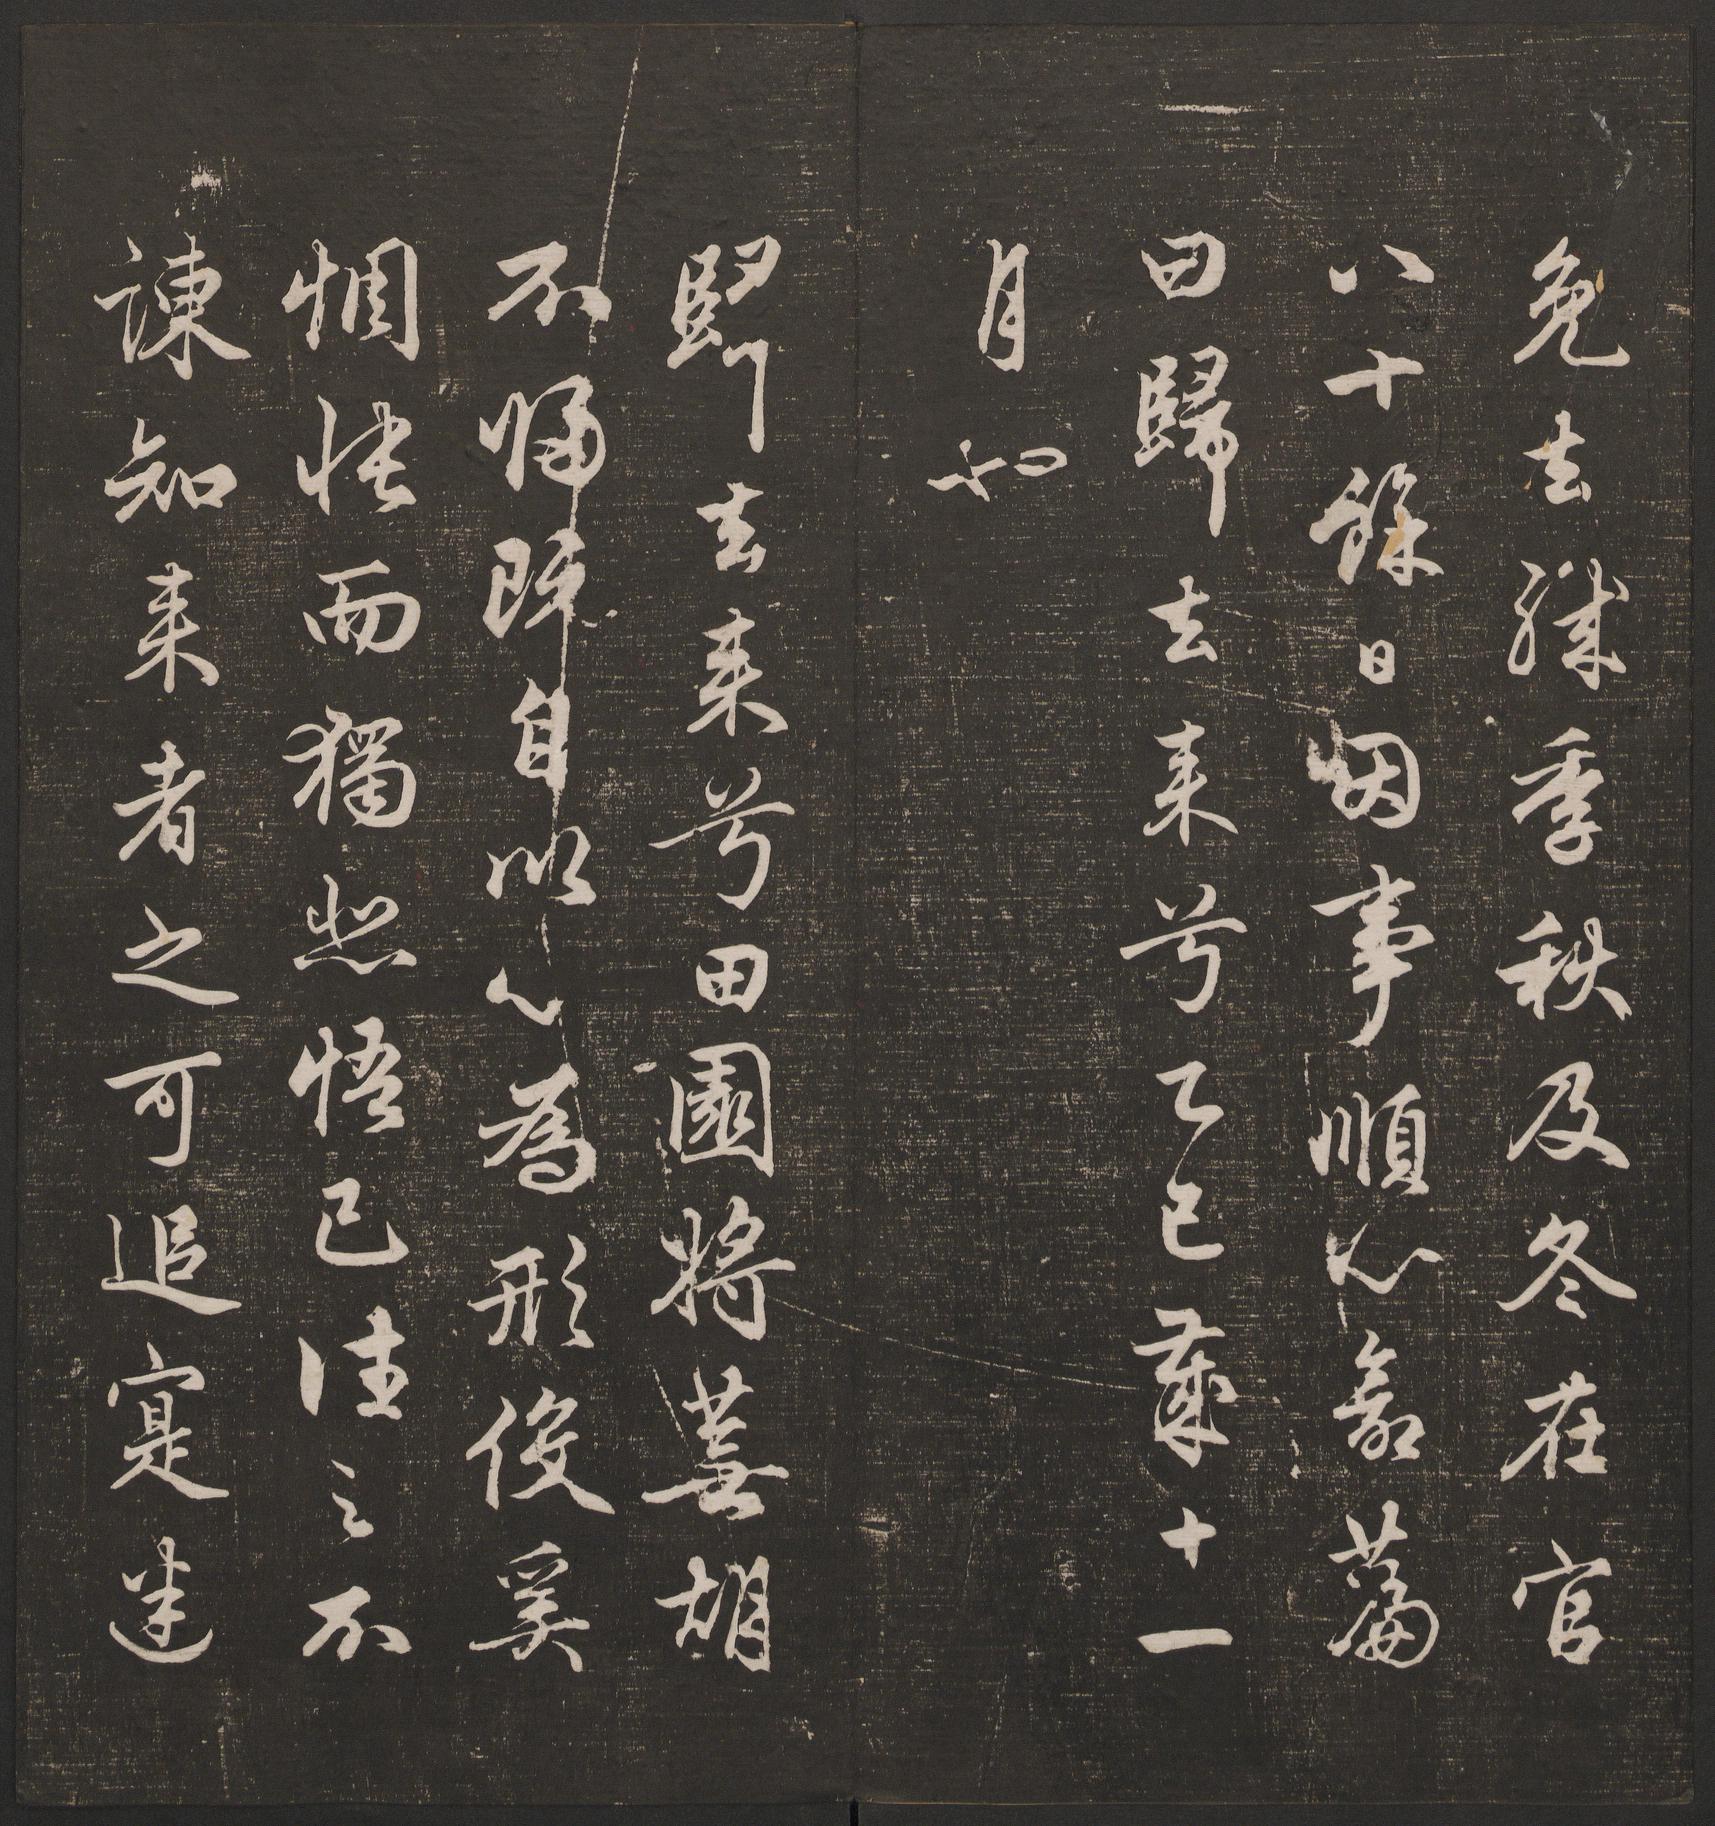 免去職季秋及冬在官
八十餘日因事順心命篇
曰歸去来兮乙巳歲十一
月也
歸去来兮田園將蕪胡
不歸既自以心為形役奚
惆悵而獨悲悟已往之不
諫知来者之可追寔迷